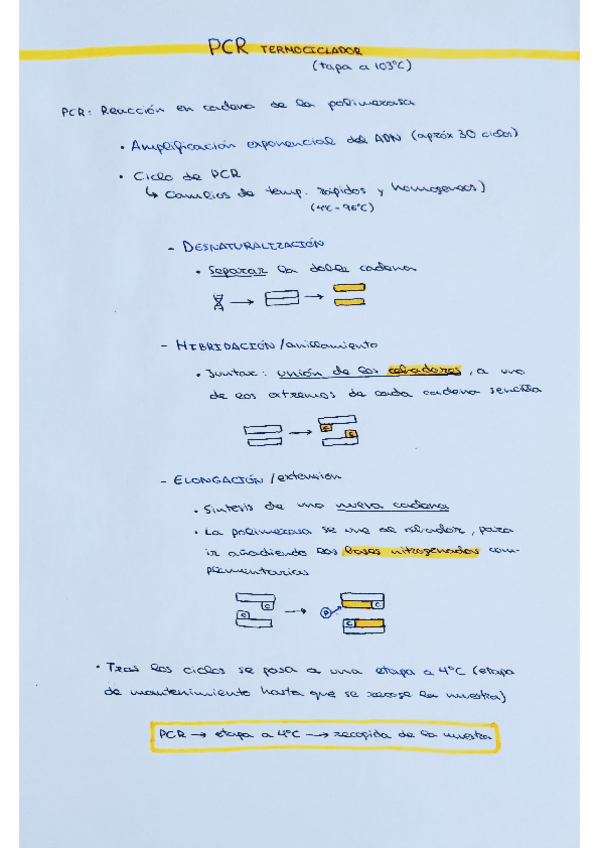 PCR TERMOCICLADOR
(tapa a 103°C)
PCR: Reacción en cadena de la polimerasa
• Amplificación exponencial del ADN (apróx 30 ciclos)
• Ciclo de PCR
↳ Cambios de temp. rápidos y homogeneos)
(4°C - 96°C)
- DESNATURALIZACIÓN
• Separar la doble cadena
- HIBRIDACIÓN / anillamiento
• Juntar: unión de los cebadores, a uno
de los extremos de cada cadena sencilla
C
C
- ELONGACIÓN / extensión
• Síntesis de una nueva cadena
• La polimerasa se une al cebador, para
ir añadiendo las bases nitrogenadas com-
plementarias
C P C
C C
• Tras los ciclos se pasa a una etapa a 4°C (etapa
de mantenimiento hasta que se recoge la muestra)
PCR → etapa a 4°C → recogida de la muestra